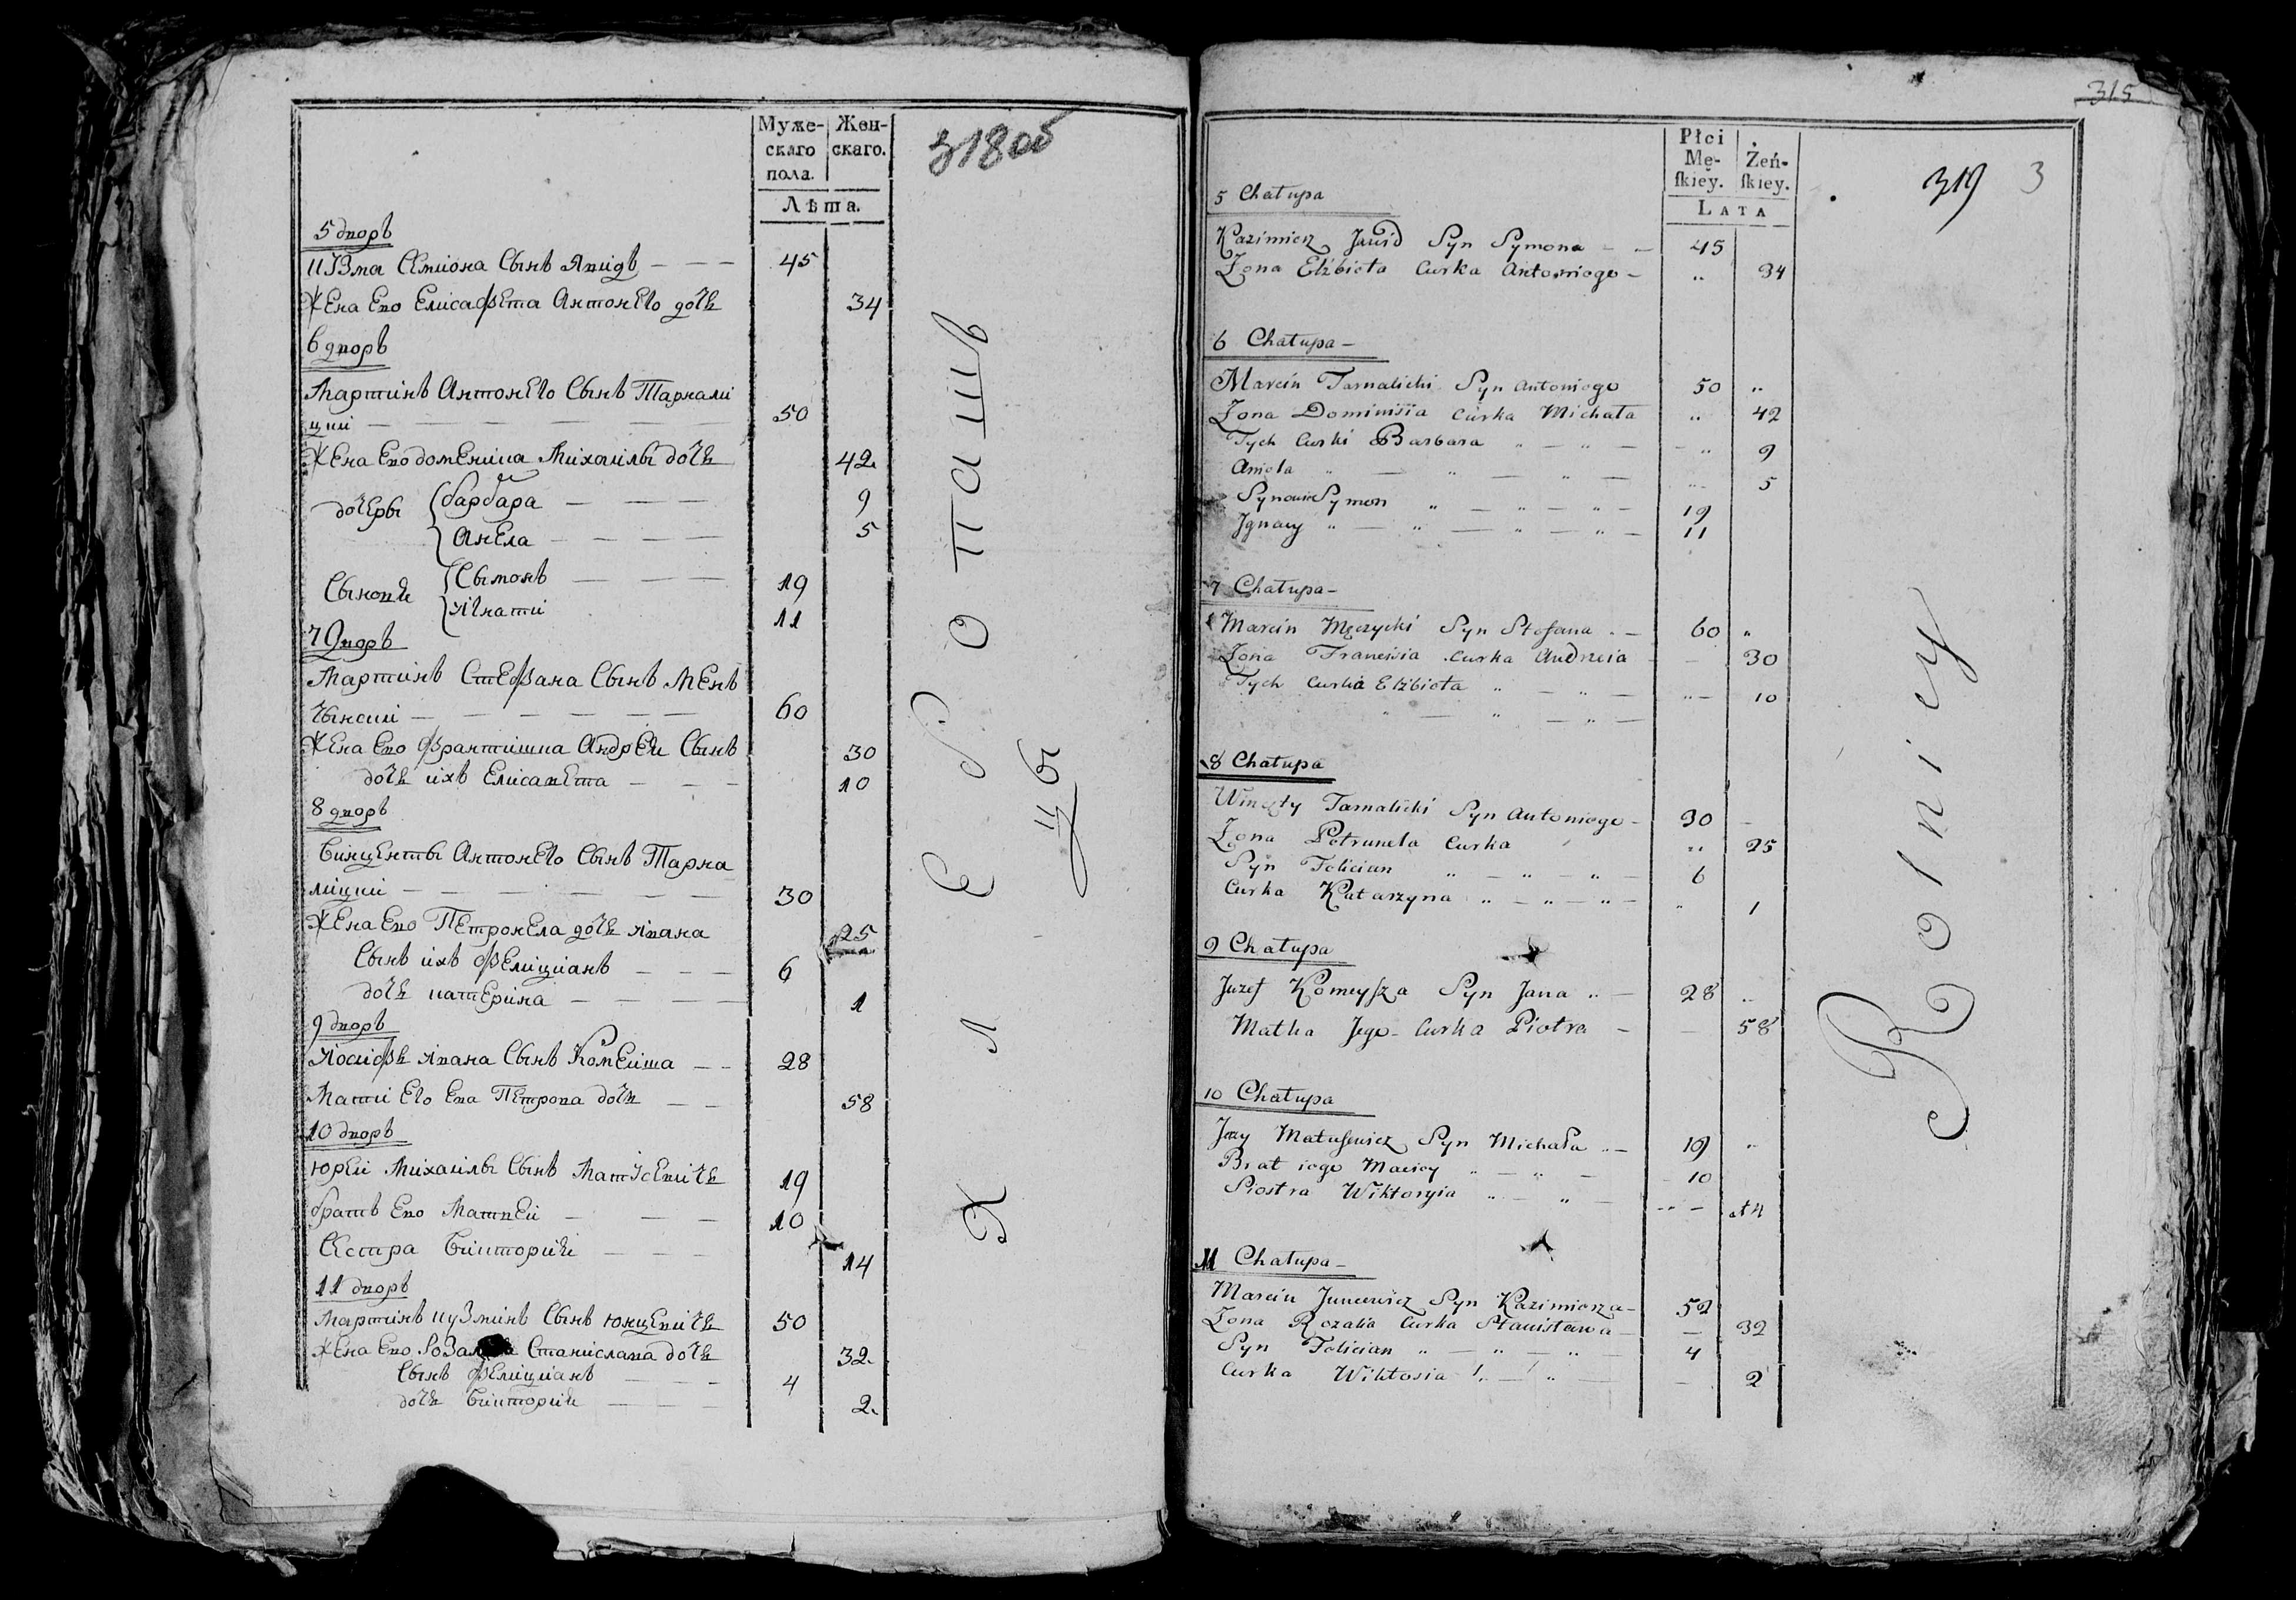 Муже-
скаго
пола.
Жен-
скаго.
Лѣта.
318об
5 дворъ
Жена Ево Елисафета Антонего дочь
45
34
6 дворъ
Мартинъ Антонего Сынъ Тарнали
цки
50
Жена Ево доменика Михаилы дочь
42
дочеры
барбара
9
Анела
5
Сыновя
Сымонъ
19
Игнати
11
7 Дворъ
Мартинъ Стефана Сынъ Менъ
60
Жена Ево Франтишка Андрея Сынъ
30
дочь ихъ Елисавета
10
8 дворъ
Винценты Антонего Сынъ Тарна
лицки
30
Жена Ево Петронела дочь Ивана
25
Сынъ ихъ Фелицианъ
6
дочь катерина
1
9 дворъ
Иосифъ Ивана Сынъ Комеиша
28
Мати Его Ева Петрова дочь
58
10 дворъ
Юреи Михаилы Сынъ
19
братъ Ево Матвеи
10
Сестра Викторія
14
11 дворъ
Мартинъ кузминъ Сынъ юнцевичь
50
Жена Ево Станислава дочь
32
Сынъ Фелицианъ
4
дочь Викторія
2
Хлеборопашъ
цы
315
Płci
Mę-
skiey.
Żeń-
skiey.
LATA
319 3
5 Chałupa
Kazimierz Jawid Syn Symona 45
Żona Elżbieta Curka Antoniego 34
6 Chałupa
Marcin Tarnalicki Syn Antoniego 50
Żona Dominisia Curka Michała 42
Tych Curki Barbara 9
Aniela 5
Synowie Symon 19
Jgnacy 11
7 Chałupa
Marcin Męczycki Syn Stefana 60
Żona Francisia Curka Andrzeia 30
Tych Curka Elżbieta 10
8 Chałupa
Wincęty Tarnalicki Syn Antoniego 30
Żona Petrunela Curka 25
Syn Felician 6
Curka Katarzyna 1
9 Chałupa
Juzef Komeysza Syn Jana 28
Matka Jego Curka Piotra 58
10 Chałupa
Jerzy Matusewicz Syn Michała 19
Brat iego Maciey 10
Siostra Wiktoryia 14
11 Chałupa
Marcin Juncewicz Syn Kazimierza 52
Żona Rozalia Curka Stanisława 32
Syn Felician 4
Curka Wiktosia 2
Rolnicy